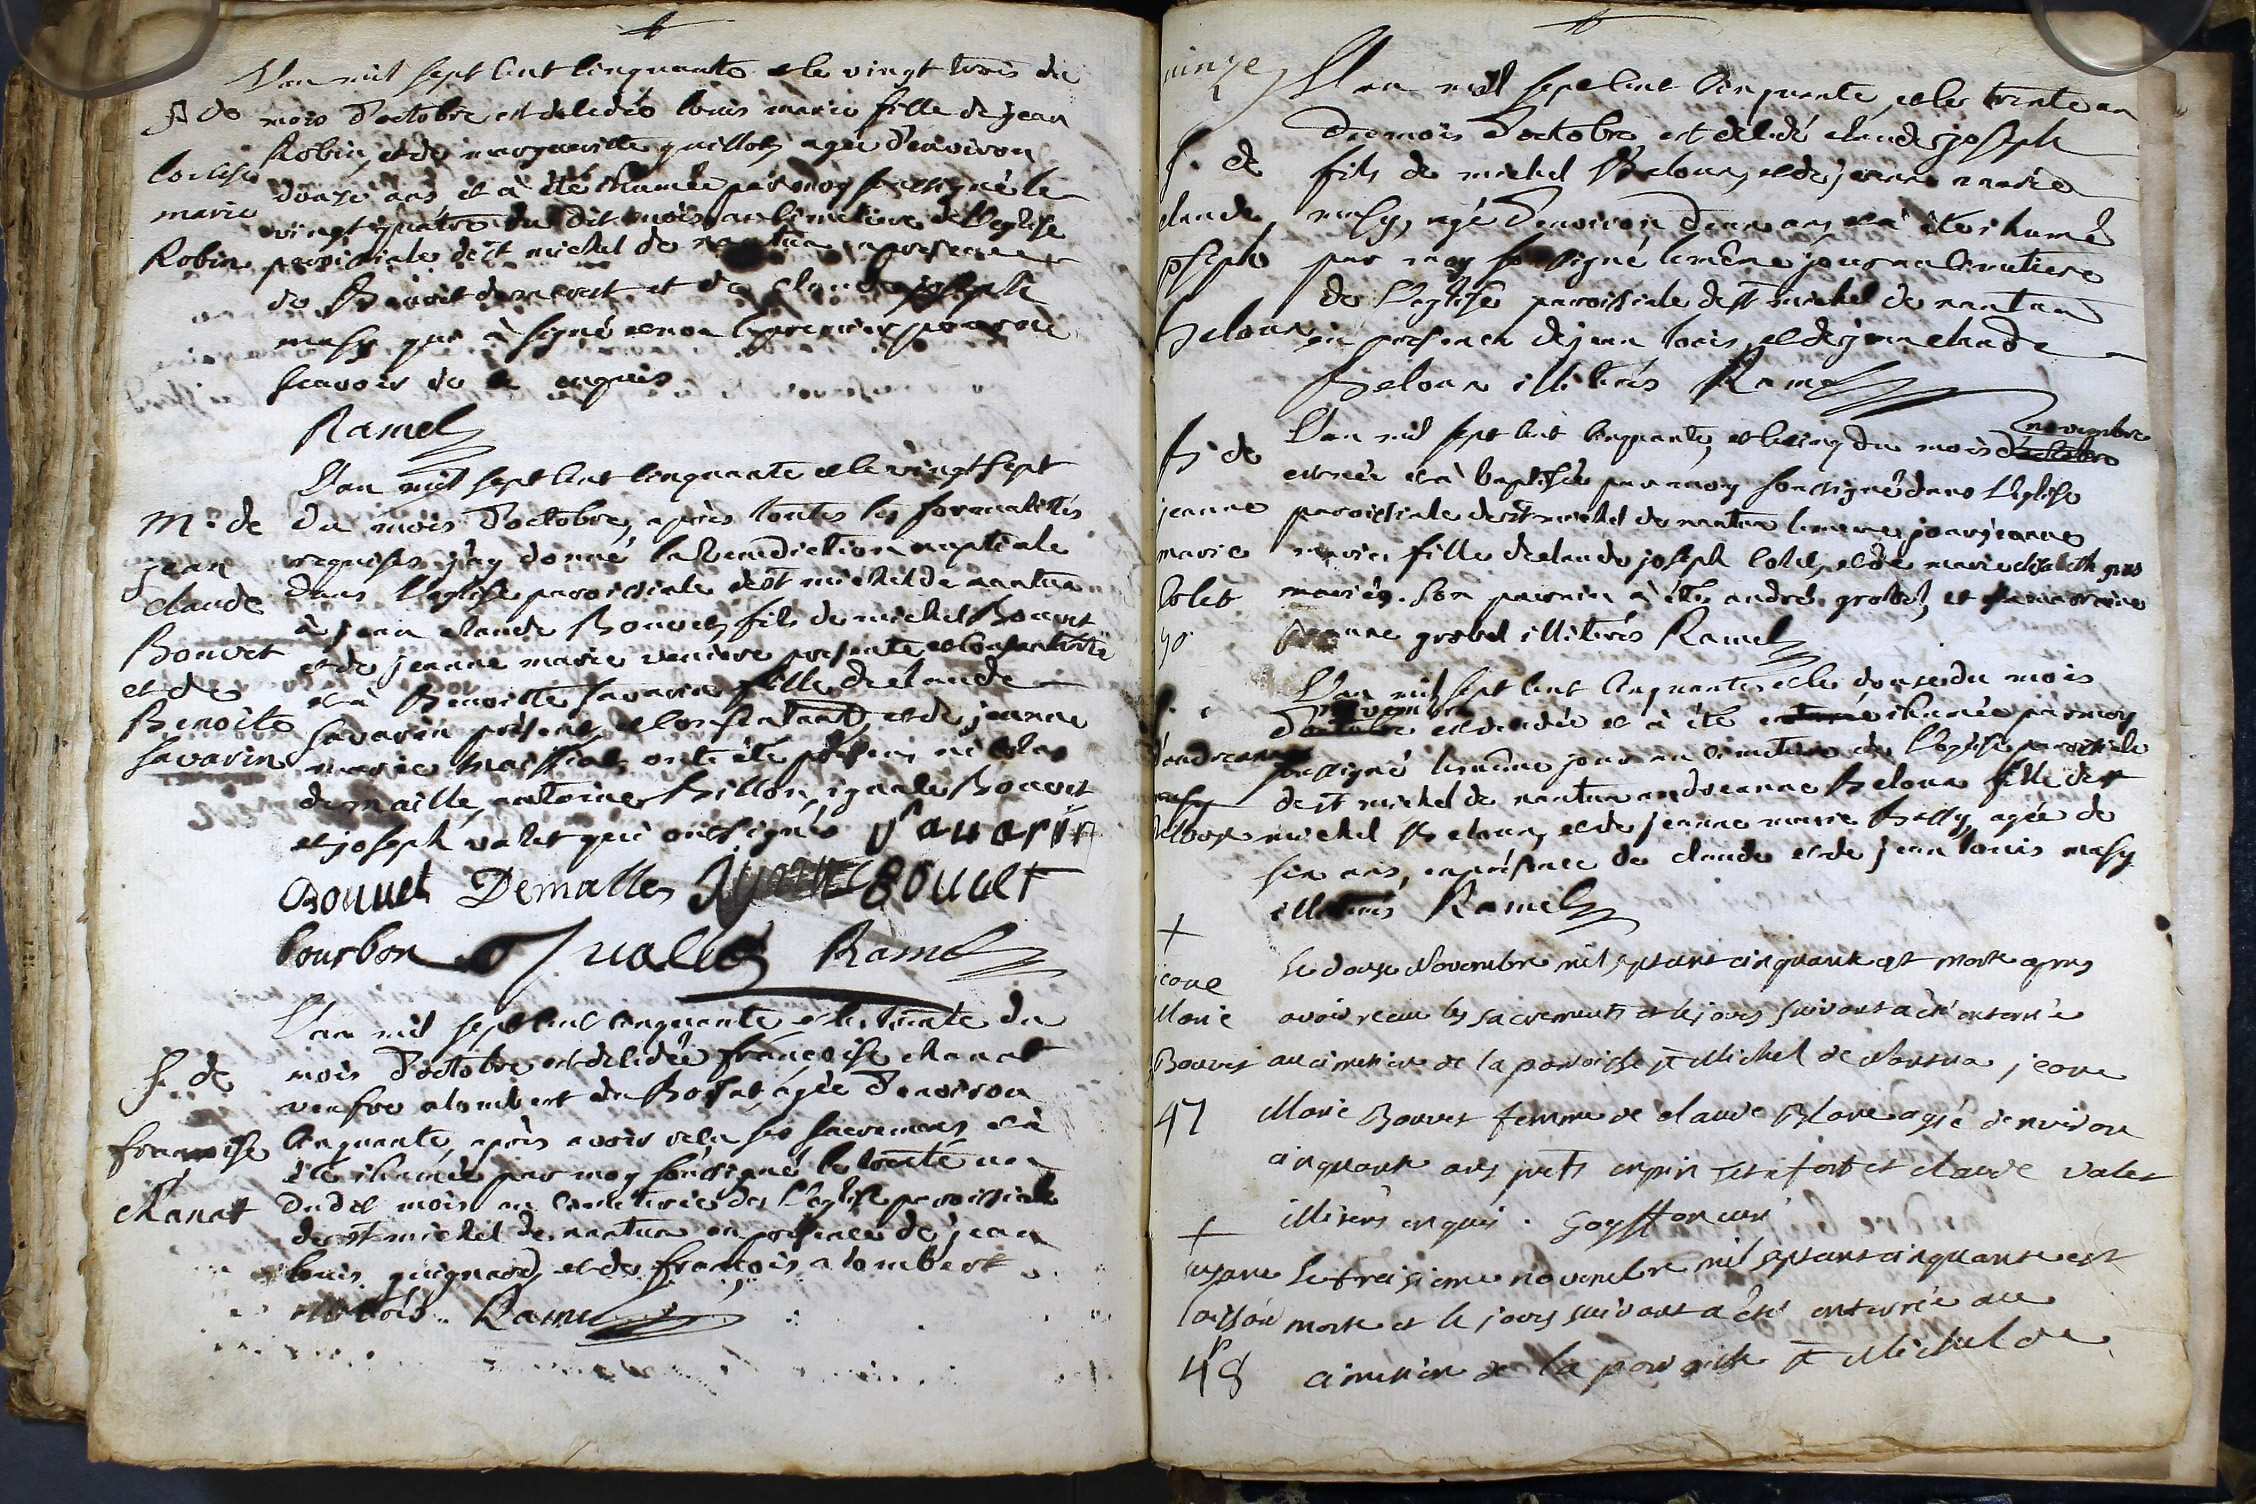 L'an mil sept cent cinquante et le vingt trois du
S. de
mois d'octobre est deledée louis marie fille de jean
Robin, et de margueritte guillot, agée d'environ
louise
douze ans, et à été ihumée par moy soussigné le
marie
vingt quatre du dit mois au cimetiere de l'eglise
Robin
paroissiale de st michel de nantua a presence
de Benoit et de claude joseph
masy qui à signé et non le premier pour ne
scavoir de ce enquis
Ramel
L'an mil sept cent cinquante et le vingt sept
M. de
du mois d'octobre, après toutes les formalités
jean
requises j'ay donné la benediction nuptiale
claude
dans l'eglise paroissiale de st michel de nantua
à jean claude Bouvet, fils de michel Bouvet
Bouvet
et de jeanne marie presente et consentante
et de
et à Benoitte savarin fille de claude
Benoite
savarin présent, et consentant, et de jeanne
savarin
marie maissiat, ont été présens nicolas
demaille, antoine Billon, ignace Bouvet
et joseph valet qui ont signés Savarin
Bouuet Demalles Bouuet
bourbon J ualles Ramel
L'an mil sept cent cinquante et le trente du
S. de
mois d'octobre est deledée françoise chanat
veufve alombert du Borsat, agée d'environ
francoise
cinquante, après avoir reçu ses sacremens et à
été ihumée par moy soussigné le trente un
chanat
dudit mois au cimetiere de l'eglise paroissiale
de st michel de nantua en presence de jean
louis guignard, et de françois alombert
illiterés. Ramel
L'an mil sept cent cinquante et le trente un
du mois d'octobre est deledé claude joseph
S. de
fils de michel Beloux, et de jeanne marie
claude
masy, agé d'environ deux ans et à été ihumé
joseph
par moy soussigné le même jour au cimetiere
de l'eglise paroissiale de st michel de nantua
Beloux
en presence de jean louis, et de jean claude
Beloux illiterés Ramel
novembre
B. de
L'an mil sept cent cinquante, et le cinq du mois d'octobre
est née et à baptisée par moy soussigné dans l'eglise
jeanne
paroissiale de st michel de nantua le meme jour jeanne
marie
marie, fille de claude joseph colet, et de marie elisabeth gros
colet
mariés. son parrain à été, andré grobel, et sa marraine
90
jeanne grobel illiterés Ramel
L'an mil sept cent cinquante et le douse du mois
novembre
d'octobre est deledée et à été ihumée par moy
andreanne
soussigné le même jour au cimetiere de l'eglise paroissiale
de st michel de nantua andreanne Beloux fille de
michel Beloux, et de jeanne marie Bessy, agée de
six ans, en présence de claude et de jean louis masy
illiterés Ramel
+
jeane
Le douze Novembre mil sept cent cinquante est morte apres
Marie
avoir recu les sacrements et le jours suivant a été enterrée
Bouvet
au cimetier de la paroisse st Michel de Nantua jeane
47
Marie Bouvet femme de claude Blanc agée denviron
cinquante ans et claude valet
illiterés enquis. Goyffon curé
+
Le treisieme novembre mil sept cent cinquante est
morte et le jours suivant a été enterrée au
48
cimetier de la paroisse st Michel de